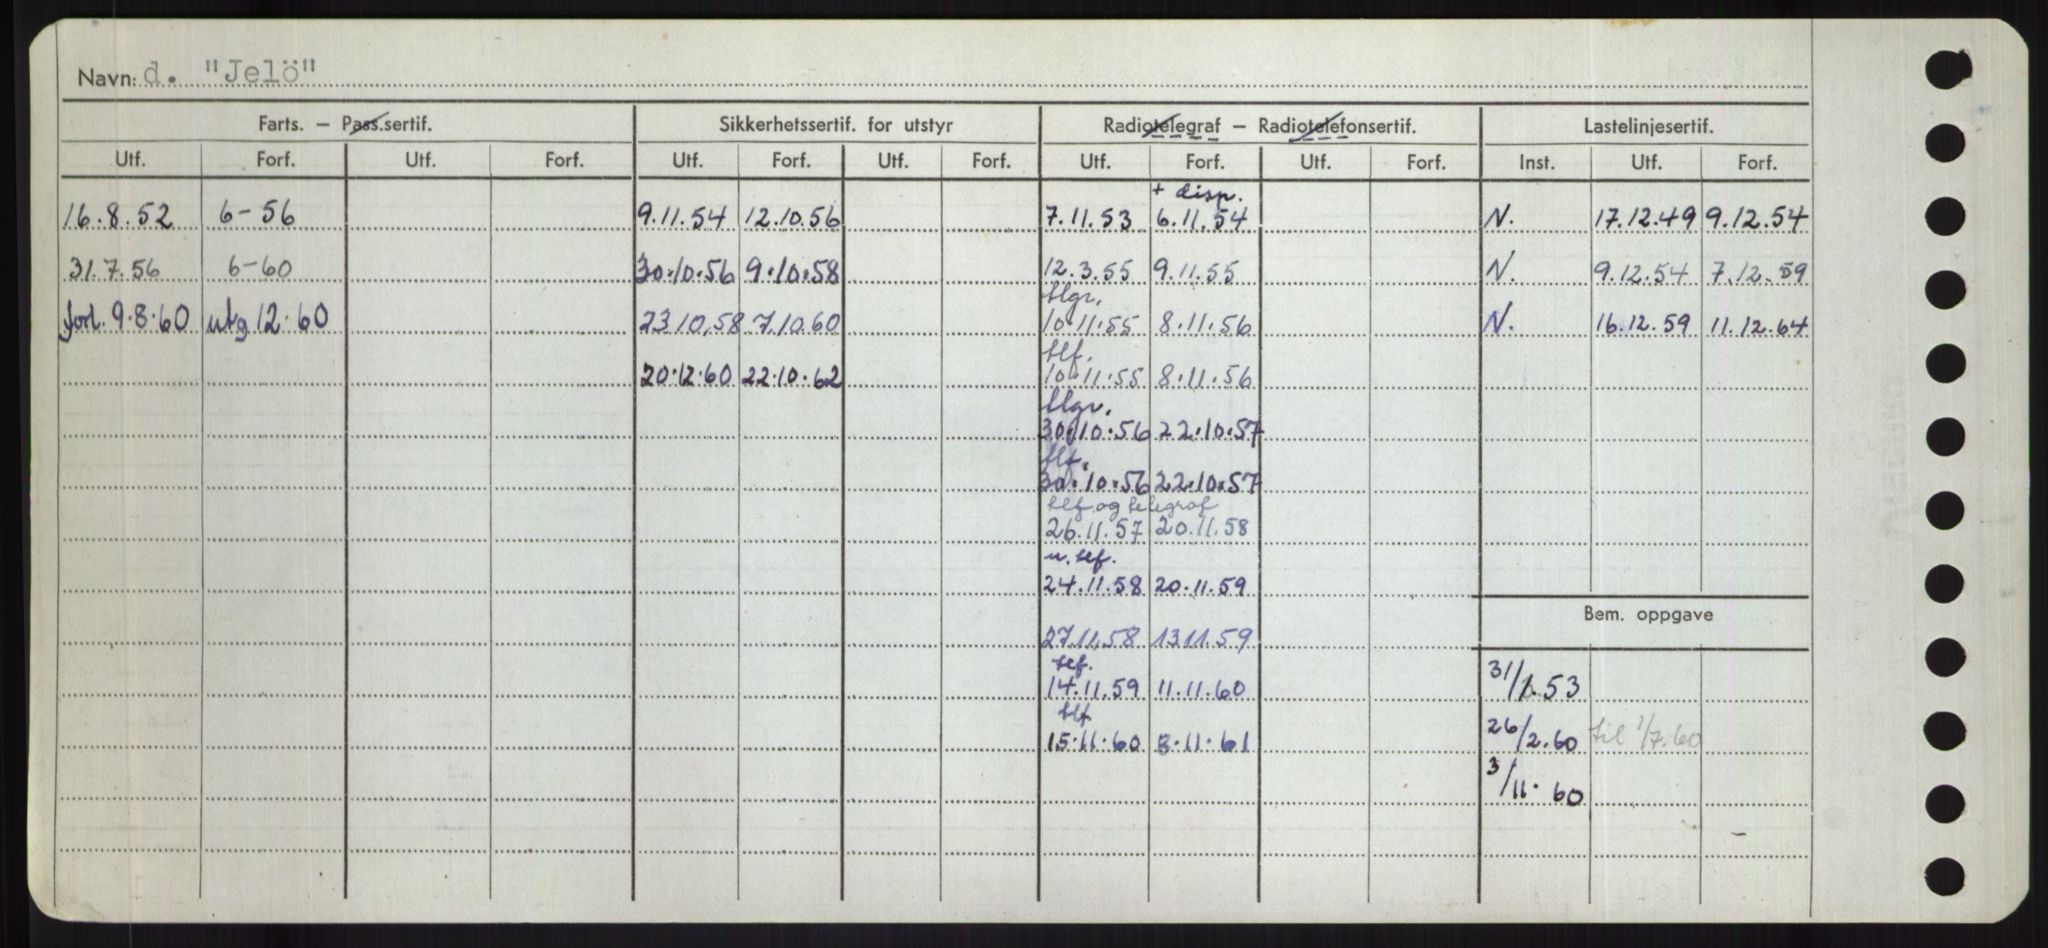 Navn: d. "Jelö"
Farts. – Pass.sertif. Sikkerhetssertif. for utstyr Radiotelegraf – Radiotelefonsertif. Lastelinjesertif.
Utf. Forf. Utf. Forf. Utf. Forf. Utf. Forf. Utf. Forf. Utf. Forf. Inst. Utf. Forf.
+ disp.
16.8.52 6-56 9.11.54 12.10.56 7.11.53 6.11.54 N. 17.12.49 9.12.54
31.7.56 6-60 30.10.56 9.10.58 12.3.55 9.11.55 N. 9.12.54 7.12.59
tlgr.
forl. 9.8.60 utg 12.60 23 10,58 7.10.60 10.11.55 8.11.56 N. 16.12.59 11.12.64
tlf.
20.12.60 22.10.62 10.11.55 8.11.56
tlgr.
30.10.56 22.10.57
tlf.
30.10.56 22.10.57
tlf og telegraf
26.11.57 20.11.58
u. tlf.
24.11.58 20.11.59
Bem. oppgave
27.11.58 13.11.59
tlf.
14.11.59 11.11.60 31/1.53
tlf
15.11.60 3.11.61 26/2.60 til 1/7.60
3/11.60